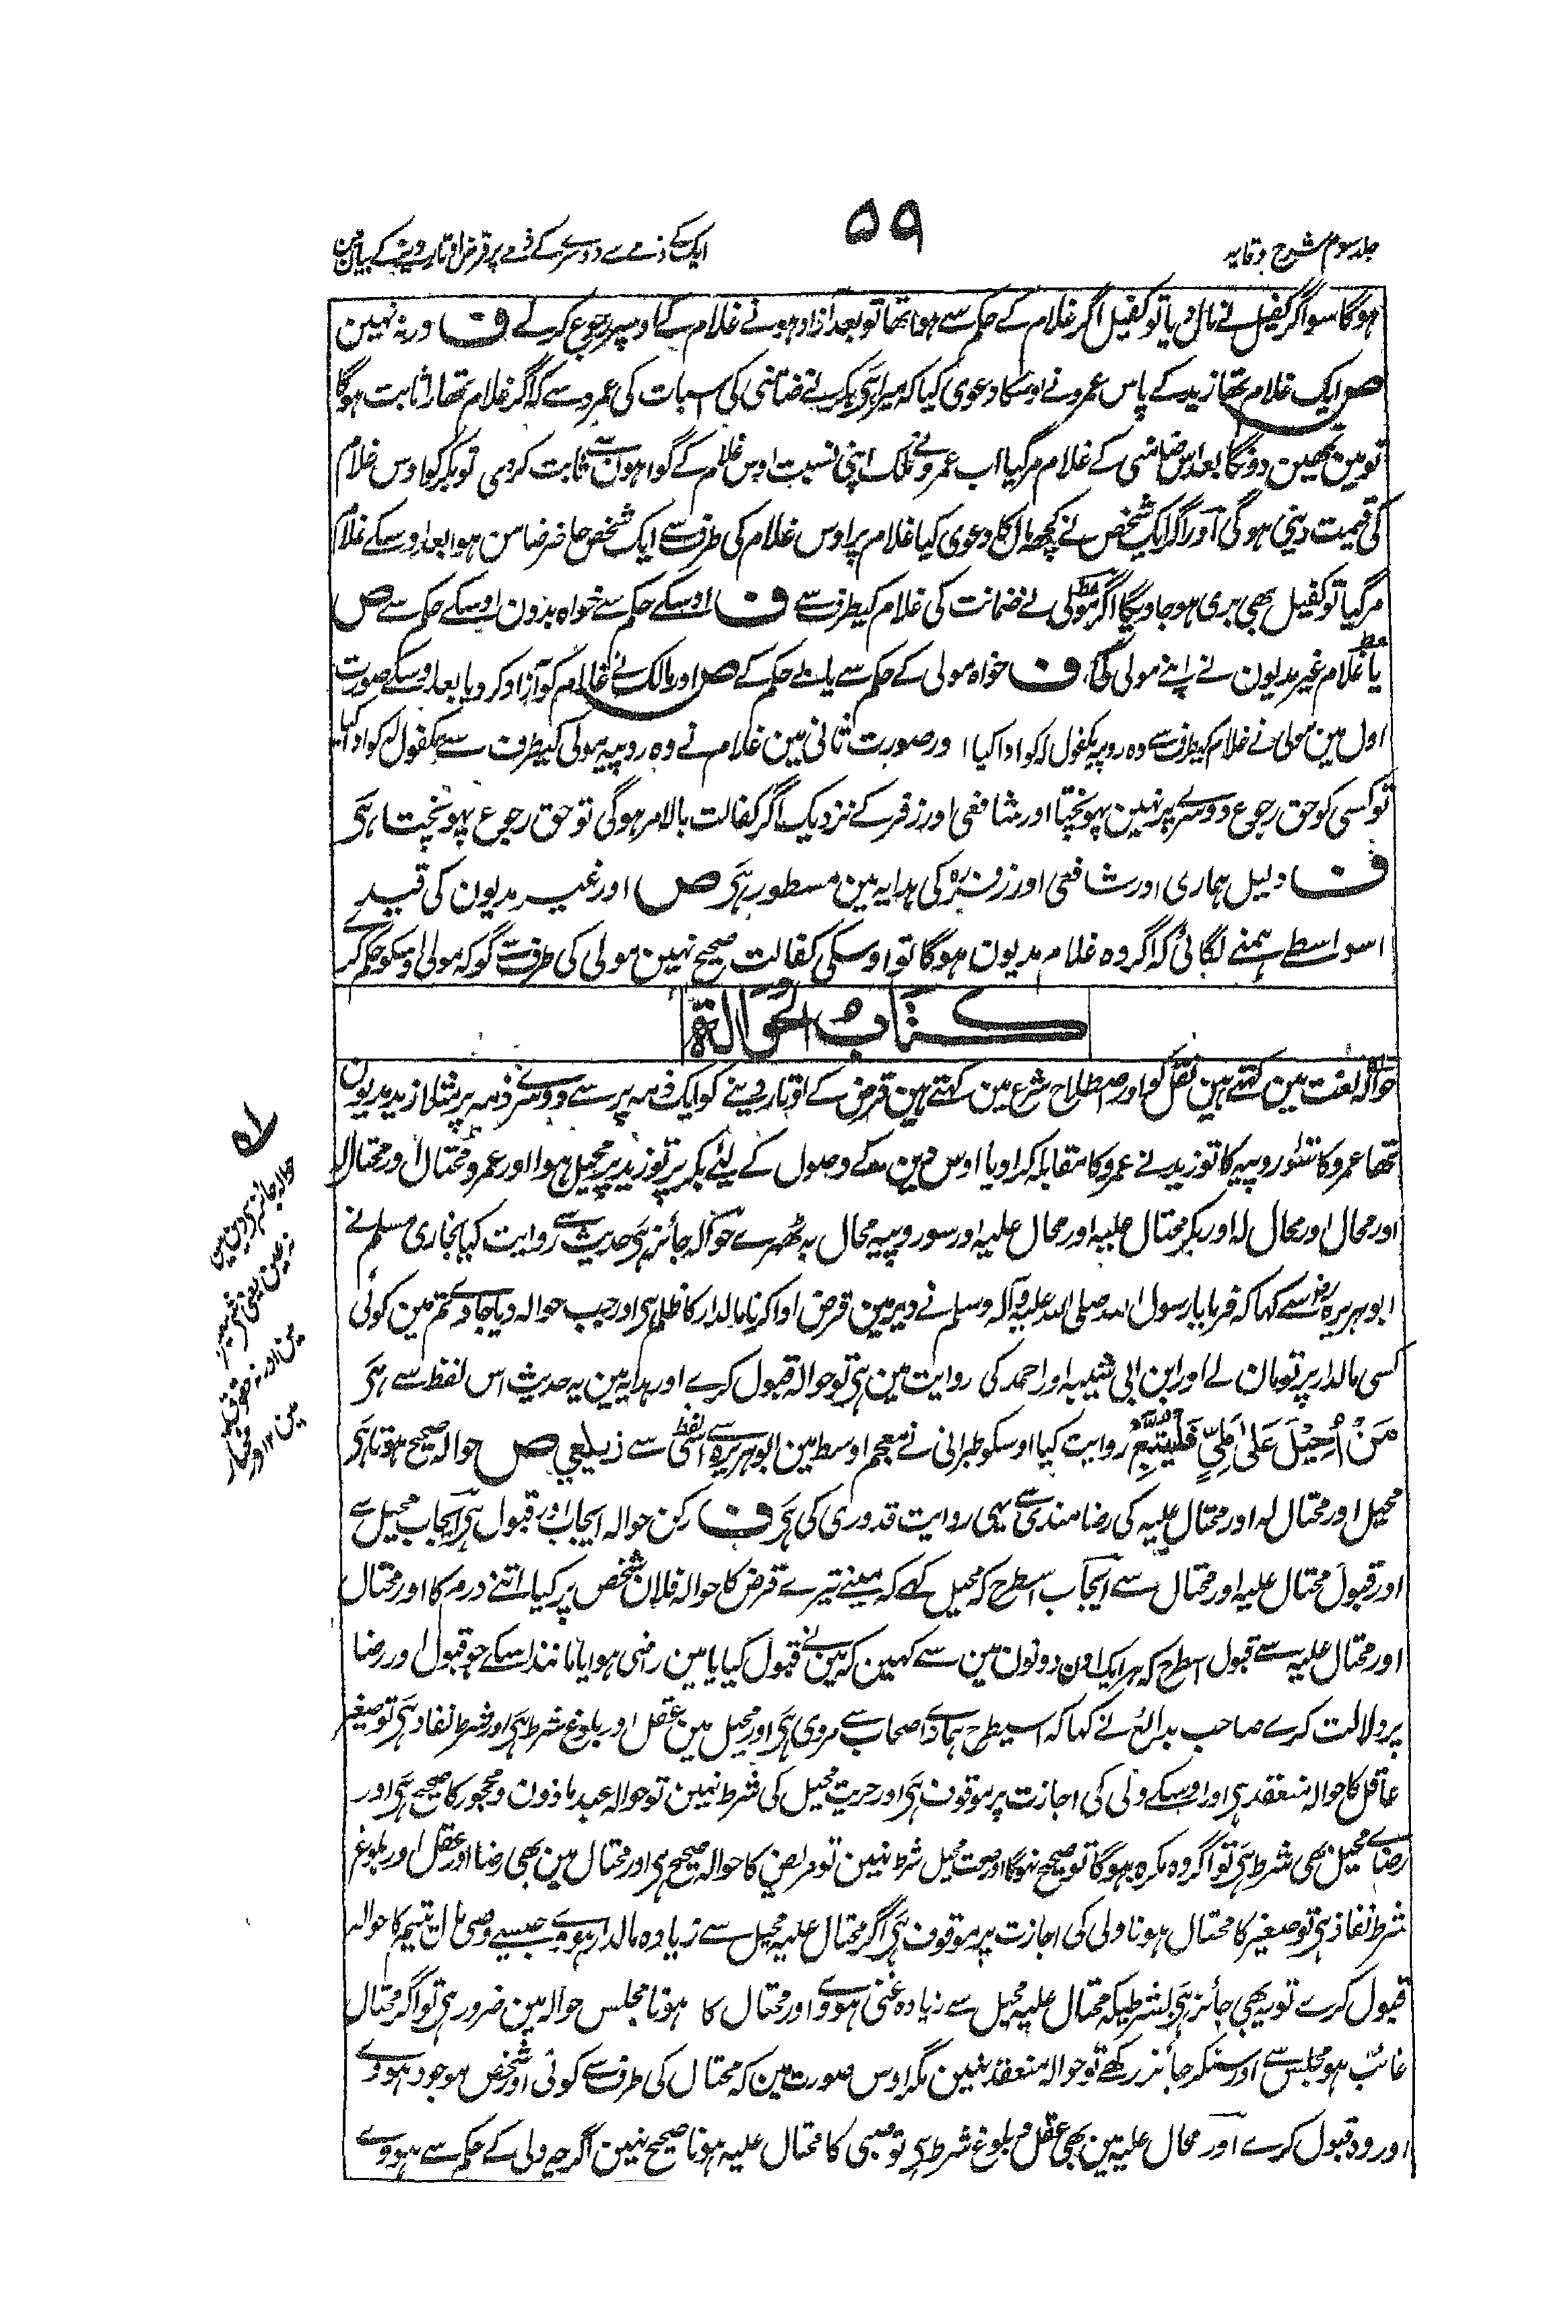 جلد سوم شرح وقایہ
۵۹
ایک کے ذمے سے دوسرے کے ذمے پر قرض اوتار دینے کے بیان مین
ہوگا سو اگر کفیل نے مال دیا تو کفیل اگر غلام کے حکم سے ہوا تھا تو بعد آزاد ہونے غلام کے اوسپر رجوع کر لے ف ورنہ نہین
ص ایک غلام تھا زید کے پاس عمرو نے اوسکا دعوی کیا کہ میرا ہی بکر نے ضامنی کی اسبات کی عمرو سے کہ اگر غلام تمھارا ثابت ہوگا
تو مین تمھین دونگا بعد اس ضامنی کے غلام مر گیا اب عمرو نے ملک اپنی نسبت اوس غلام کے گواہون سے ثابت کر دی تو بکر کو اوس غلام
کی قیمت دینی ہوگی اور اگر ایک شخص نے کچھ مال کا دعوی کیا غلام پر اوس غلام کی طرف سے ایک شخص حاضر ضامن ہوا بعد اوسکے غلام
مر گیا تو کفیل بھی بری ہو جاویگا اگر مولی نے ضمانت کی غلام کیطرف سے ف اوسکے حکم سے خواہ بدون اوسکے حکم سے ص
یا غلام غیر مدیون نے اپنے مولی کی ف خواہ مولی کے حکم سے یا بے حکم کے ص اور مالک نے غلام کو آزاد کر دیا بعد اوسکے صورت
اول مین مولی نے غلام کیطرف سے وہ روپیہ مکفول لہ کو ادا کیا اور صورت ثانی مین غلام نے وہ روپیہ مولی کیطرف سے مکفول لہ کو ادا کیا
تو کسی کو حق رجوع دوسرے پر نہین پہونچتا اور شافعی اور زفر کے نزدیک اگر کفالت بالامر ہوگی تو حق رجوع پہونچتا ہی
ف دلیل ہماری اور شافعی اور زفرؒ کی ہدایہ مین مسطور ہی ص اور غیر مدیون کی قید
اسواسطے ہمنے لگائی کہ اگر وہ غلام مدیون ہوگا تو اوسکی کفالت صحیح نہین مولی کی طرف سے گو کہ مولی اوسکو حکم کرے
کتاب الحوالۃ
حوالہ لغت مین کہتے ہین نقل کو اور اصطلاح شرع مین کہتے ہین قرض کے اوتار دینے کو ایک ذمہ پر سے دوسرے ذمہ پر مثلا زید مدیون
تھا عمرو کا سو روپیہ کا تو زید نے عمرو کا مقابلہ کرا دیا اوس دین کے وصول کے لیے بکر پر تو زید محیل ہوا اور عمرو محتال اور محتال لہ
اور محال اور محال لہ اور بکر محتال علیہ اور محال علیہ اور سو روپیہ محال بہ ٹھہرے حوالہ جائز ہی حدیث سے روایت کیا بخاری مسلم نے
ابو ہریرہ رض سے کہا کہ فرمایا رسول اللہ صلی اللہ علیہ وآلہ وسلم نے دیر مین قرض ادا کرنا مالدار کا ظلم ہی اور جب حوالہ دیا جاوے تم مین کوئی
کسی مالدار پر تو مان لے اور ابن ابی شیبہ اور احمد کی روایت مین ہی تو حوالہ قبول کرے اور ہدایہ مین یہ حدیث اس لفظ سے ہی
مَنْ اُحِیْلَ عَلیٰ مَلِیٍّ فَلْیَتَّبِعْ روایت کیا اوسکو طبرانی نے معجم اوسط مین ابو ہریرہ سے اسی لفظ سے زیلعی ص حوالہ صحیح ہوتا ہی
محیل اور محتال لہ اور محتال علیہ کی رضامندی سے یہی روایت قدوری کی ہی ف رکن حوالہ ایجاب اور قبول ہی ایجاب محیل سے
اور قبول محتال علیہ اور محتال سے ایجاب اسطرح کہ محیل کہے کہ مینے تیرے قرض کا حوالہ فلان شخص پر کیا اتنے درم کا اور محتال
اور محتال علیہ سے قبول اسطرح کہ ہر ایک اون دونون مین سے کہین کہ مین نے قبول کیا یا مین راضی ہوا یا مانند اسکے جو قبول اور رضا
پر دلالت کرے صاحب بدائع نے کہا کہ اسیطرح ہمارے اصحاب سے مروی ہی اور محیل مین عقل اور بلوغ شرط ہی اور شرط نفاذ ہی تو صغیر
عاقل کا حوالہ منعقد ہی اور اوسکے ولی کی اجازت پر موقوف ہی اور حریت محیل کی شرط نہین تو حوالہ عبد ماذون و محجور کا صحیح ہی اور
رضاے محیل بھی شرط ہی تو اگر وہ مکرہ ہوگا تو صحیح نہوگا اور صحت محیل شرط نہین تو مریض کا حوالہ صحیح ہی اور محتال مین بھی رضا اور عقل اور بلوغ
شرط نفاذ ہی تو صغیر کا محتال ہونا ولی کی اجازت پر موقوف ہی اگر محتال علیہ محیل سے زیادہ مالدار ہووے جیسے وصی مال یتیم کا حوالہ
قبول کرے تو یہ بھی جائز ہی بشرطیکہ محتال علیہ محیل سے زیادہ غنی ہووے اور محتال کا ہونا مجلس حوالہ مین ضرور ہی تو اگر محتال
غائب ہو مجلس سے اور سنکر جائز رکھے تو حوالہ منعقد نہین مگر اوس صورت مین کہ محتال کی طرف سے کوئی اور شخص موجود ہووے
اور وہ قبول کرے اور محال علیہ مین بھی عقل و بلوغ شرط ہی تو صبی کا محتال علیہ ہونا صحیح نہین اگرچہ ولی کے حکم سے ہووے
حوالہ جائز ہی دین مین
نہ عین یعنی
مین اور نہ حقوق
مین ۱۲ در مختار